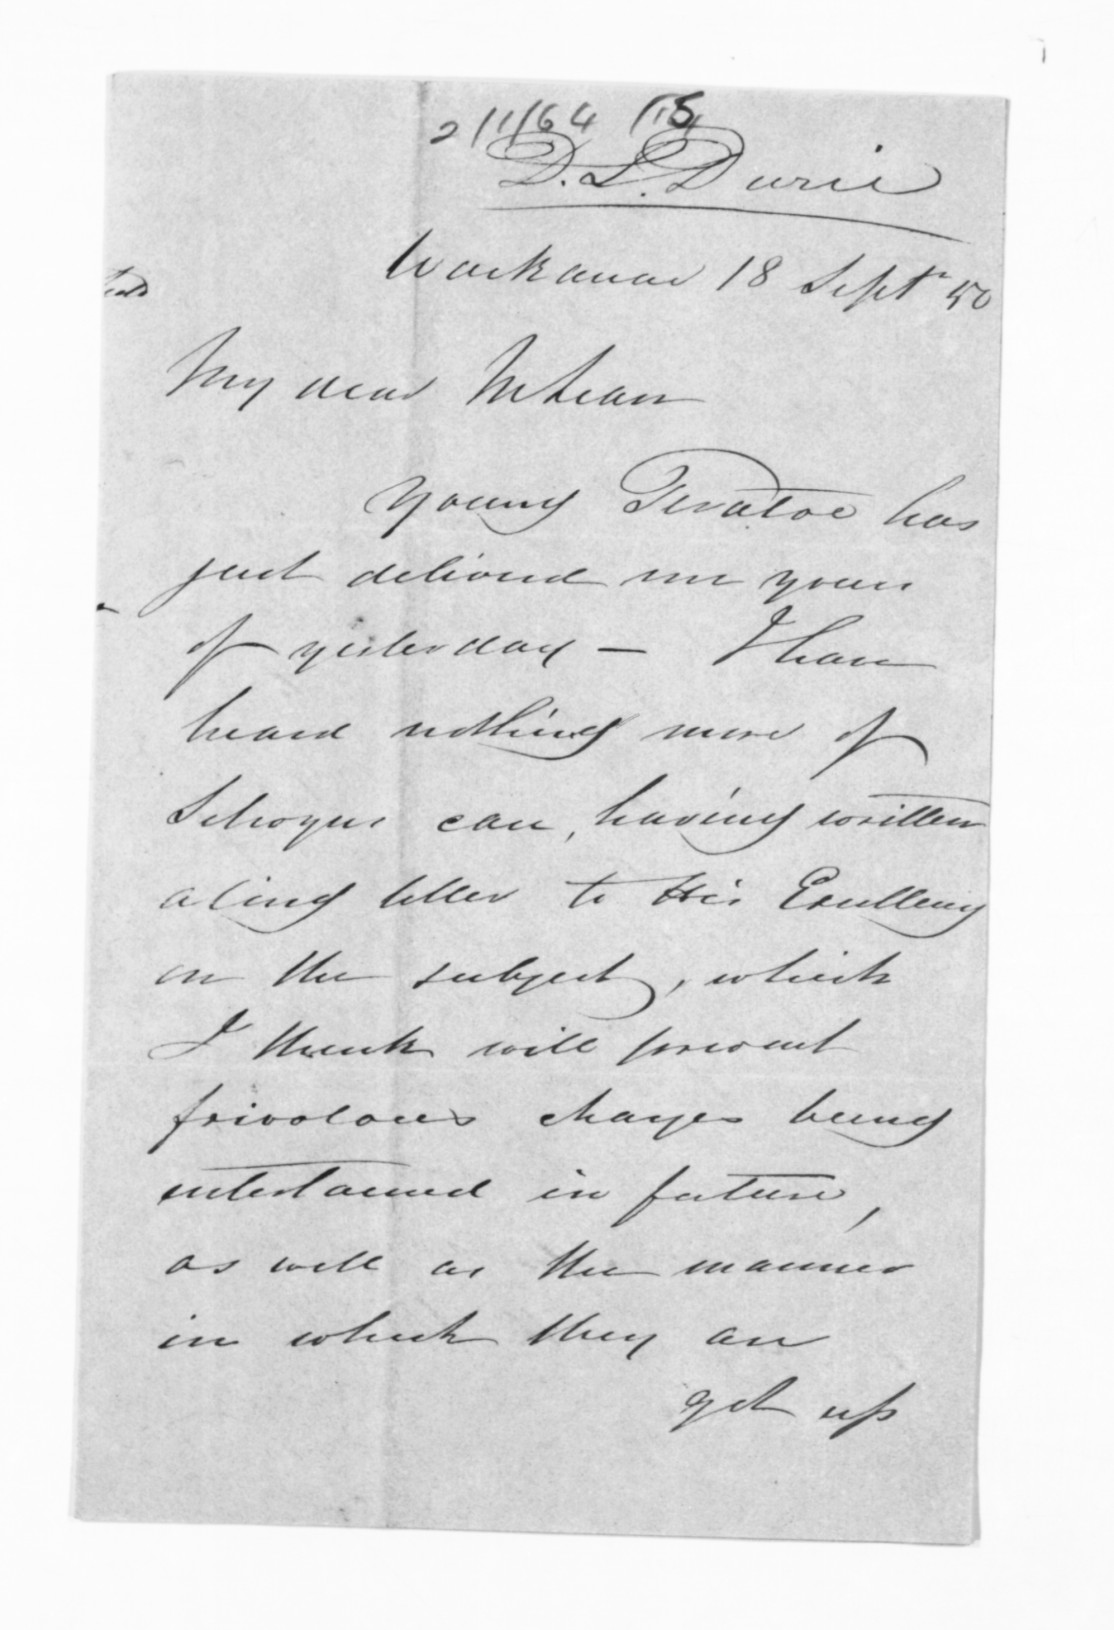 D. S. Durie
Waikanae 18 Septr 50
My dear McLean
Young has
just delivered me yours
of yesterday — I have
heard nothing more of
case, having written
a long letter to His Excellency
on the subject, which
I think will prevent
frivolous charges being
entertained in future,
as well as the manner
in which they are
got up